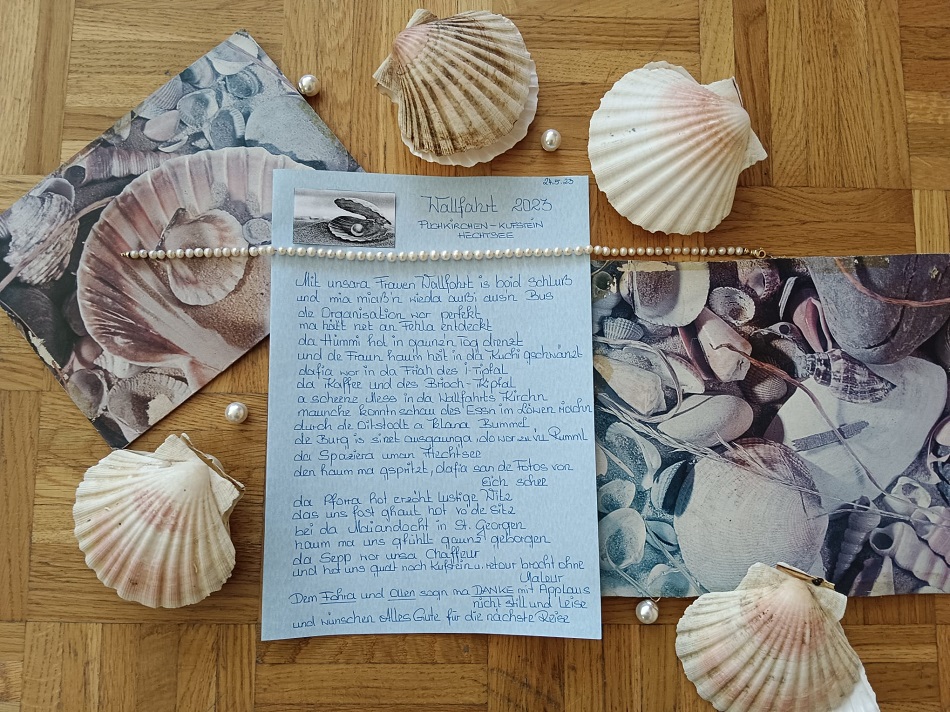 24.5.23
Wallfahrt 2023
PUCHKIRCHEN - KUFSTEIN
HECHTSEE
Mit unsara Frauen Wallfahrt is boid Schluß
und mia miaß'n wieda außi aus'n Bus
die Organisation wor perfekt
ma hätt net an Fehla entdeckt
da Himmi hot in gaunzn Tog drenzt
und de Fraun haum heit in da Kuchi gschwänzt
dafia wor in da Friah des i-Tipfal
da Kaffee und des Brioch-Kipfal
a scheene Mess in da Wallfahrts Kirchn
maunche konntn schau des Essn im Löwen riachn
durch de Oitstodt a klana Bummel
de Burg is si net ausgaunga, do wor zu vü Rumml
da Spaziera uman Hechtsee
den haum ma gspritzt, dafia san de Fotos von
Eich schee
da Pforra hot erzöht lustige Witz
das uns fost ghaut hot vo de Sitz
bei da Maiandocht in St. Georgen
haum ma uns gfühlt gaunz geborgen
da Sepp wor unsa Chauffeur
und hot uns guat noch Kufstein u. retour brocht ohne
Maleur
Dem Fahra und Allen sogn ma DANKE mit Applaus
nicht still und Leise
und wünschen Alles Gute für die nächste Reise